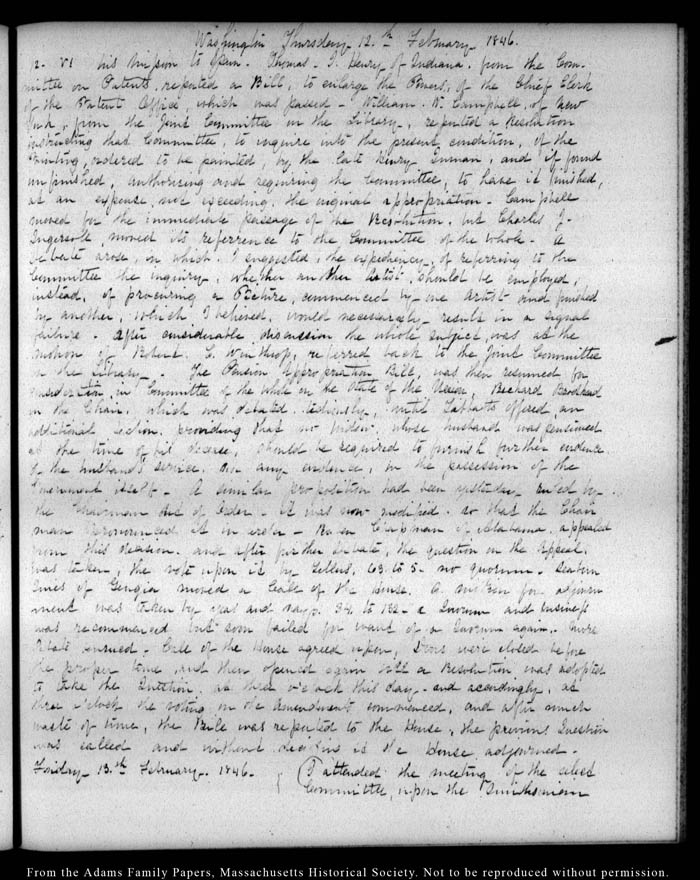 Washington Thursday 12.th February 1846.
12. VI his mission to Spain. Thomas. J. Henry of Indiana. from the Com-
mittee on Patents, reported a Bill, to enlarge the Powers, of the Chief Clerk
of the Patent Office, which was passed – William. W. Campbell, of New
York, from the Joint Committee on the Library, reported a Resolution
instructing that Committee, to inquire into the present, condition, of the
Painting, ordered to be painted, by the late Henry Inman, and if found
unfinished, authorising and requiring the Committee, to have it finished,
at an expense, not exceeding, the original appropriation – Campbell
moved for the immediate passage of the Resolution. but Charles J.
Ingersoll, moved its referrence to the Committee of the whole. A
debate arose, in which. I suggested, the expediency, of referring to the
Committee the inquiry, whether another Artist, should be employed,
instead, of procuring a Picture, commenced by one Artist and finished
by another, which I believed, would necessarily, result in a signal
failure – After considerable, discussion the whole subject, was at the
motion of Robert. C. Winthrop, referred back to the Joint Committee
on the Library – The Pension Appropriation Bill, was then resumed for
consideration, in Committee of the whole on the State of the Union, Richard Brodhead
in the Chair. which was debated. tediously, until offered, an
additional section. providing that no Widow. whose husband was pensioned
at the time of his decease, should be required to furnish further evidence
of the husband's service. than any evidence, in the possession of the
Government itself – A similar proposition had been yesterday ruled by
the Chairman out of Order – It was now modified. so that the Chair
man pronounced it in order – Reuben Chapman of Alabama. appealed
from this decision. and after further debate, the question on the Appeal.
was taken, the vote upon it by Tellers, 63. to 5 – no quorum – Seaborn
Jones of Georgia moved a Call of the House. A motion for adjourn
ment was taken by yeas and nays. 34. to 132 – a Quorum and business
was recommenced but soon failed for want of a Quorum again. More
debate ensued – Call of the House agreed upon, Doors were closed before
the proper time, and then opened again till a Resolution was adopted
to take the Question, at three o'clock this day – and accordingly, at
three o'clock the voting on the Amendments commenced, and after much
waste of time, the Bill was reported to the House, the previous Question
was called and without deciding it the House adjourned –
Friday 13.th February. 1846. I attended the meeting of the select
Committee, upon the Smithsonian
From the Adams Family Papers, Massachusetts Historical Society. Not to be reproduced without permission.